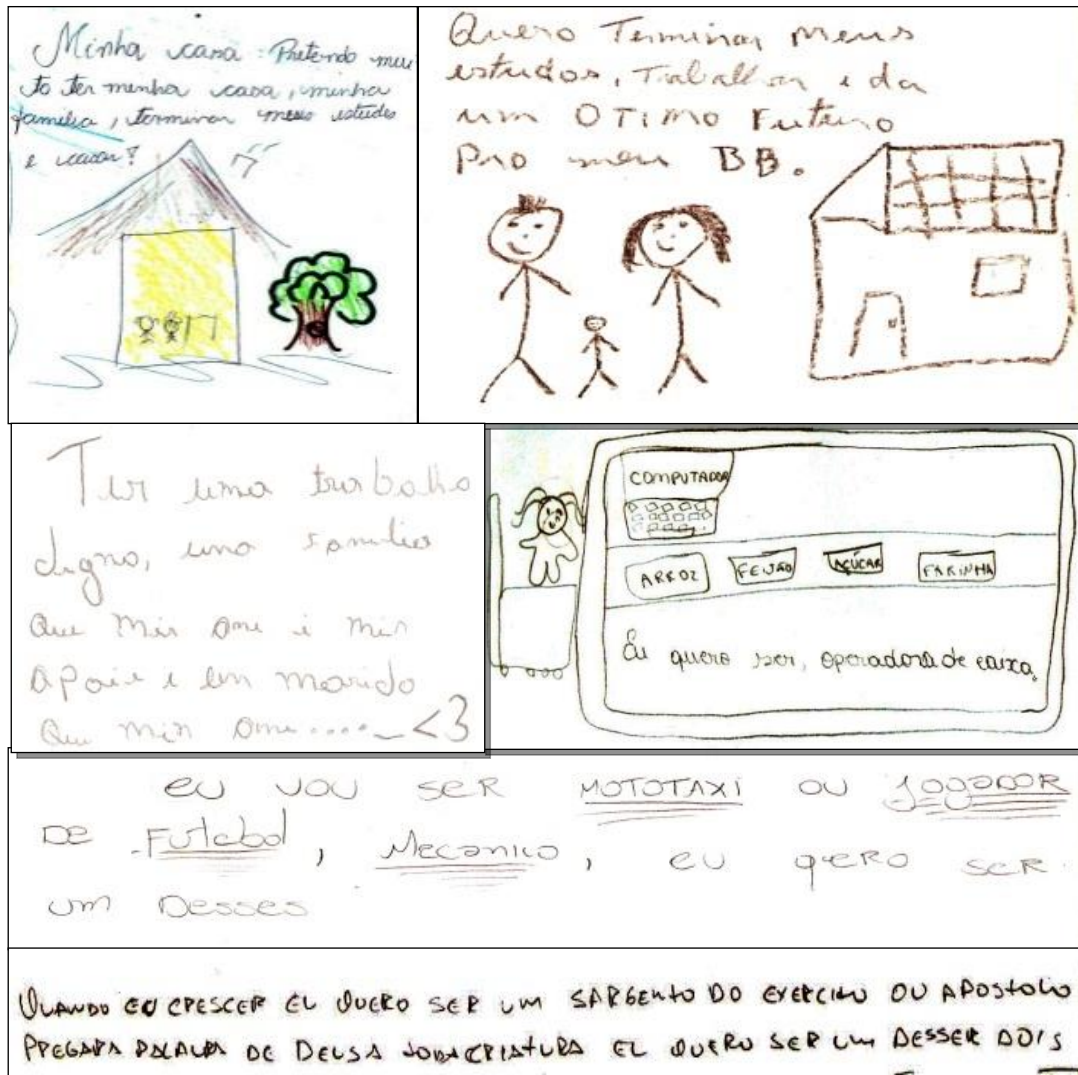 Minha casa: Pretendo mui
to ter minha casa, minha
família, terminar meus estudos
e casar?
Quero Terminar meus
estudos, Trabalhar e da
um OTIMO Futuro
Pro meu BB.
Ter uma trabalho
digno, uma familia
que mim ame e mim
apoie e um marido
que mim ame...._<3
COMPUTADOR
ARROZ FEIJÃO AÇÚCAR FARINHA
Eu quero ser, operadora de caixa.
EU VOU SER MOTOTAXI OU JOGADOR
DE Futebol, Mecanico, EU QERO SER
UM Desses
QUANDO EU CRESCER EU QUERO SER UM SARGENTO DO EXERCITO OU APOSTOLO
PREGARA PALAVRA DE DEUSA TODACRIATURA EU QUERO SER UM DESSER DOIS